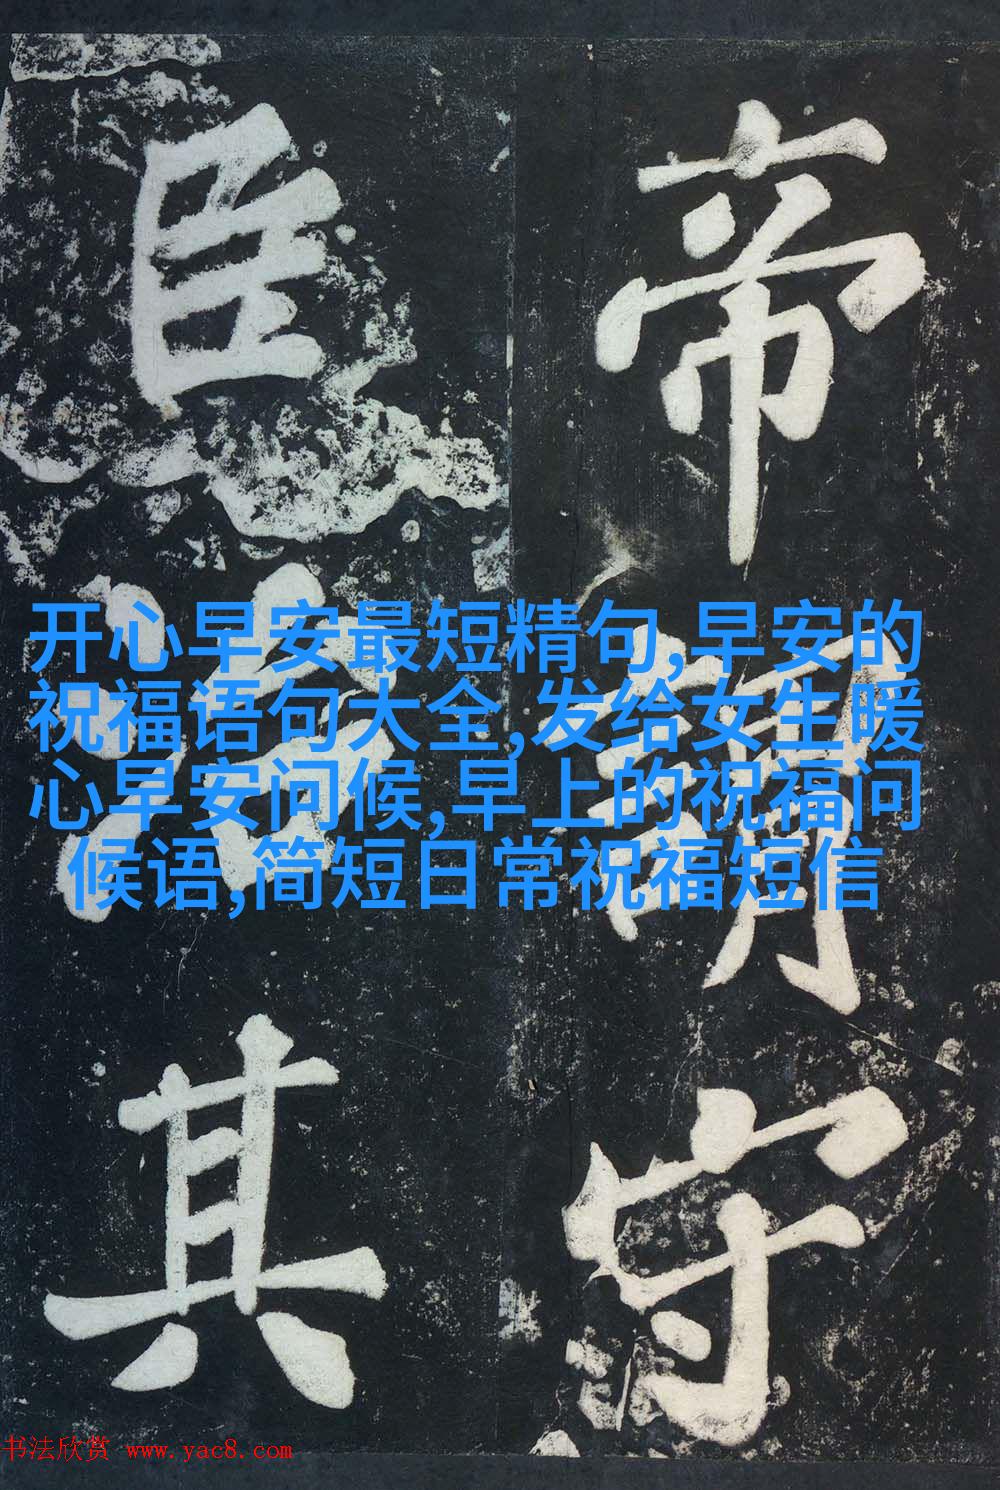 帝朝守
臣其
开心早安最短精句,早安的
祝福语句大全,发给女生暖
心早安问候,早上的祝福问
候语,简短日常祝福短信
书法欣赏 www.yac8.com